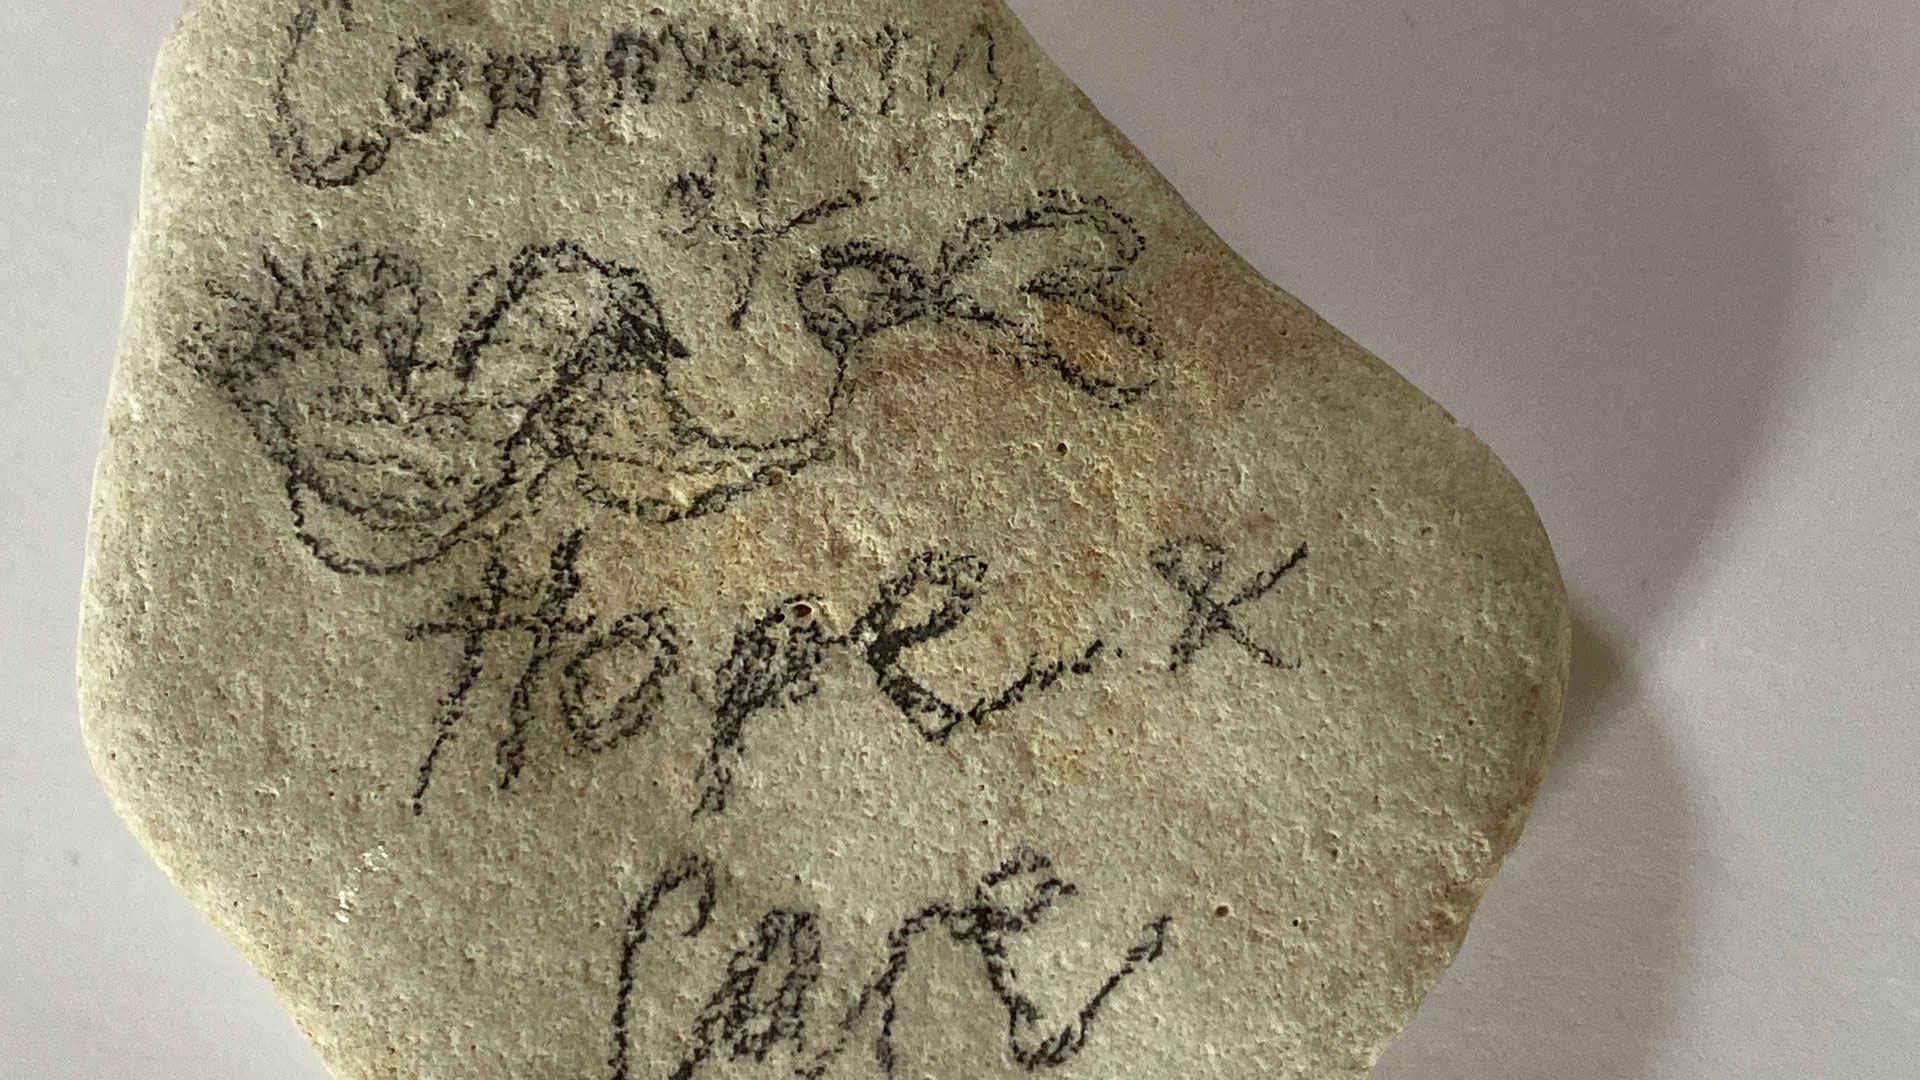 Community
&
Hope &
Care